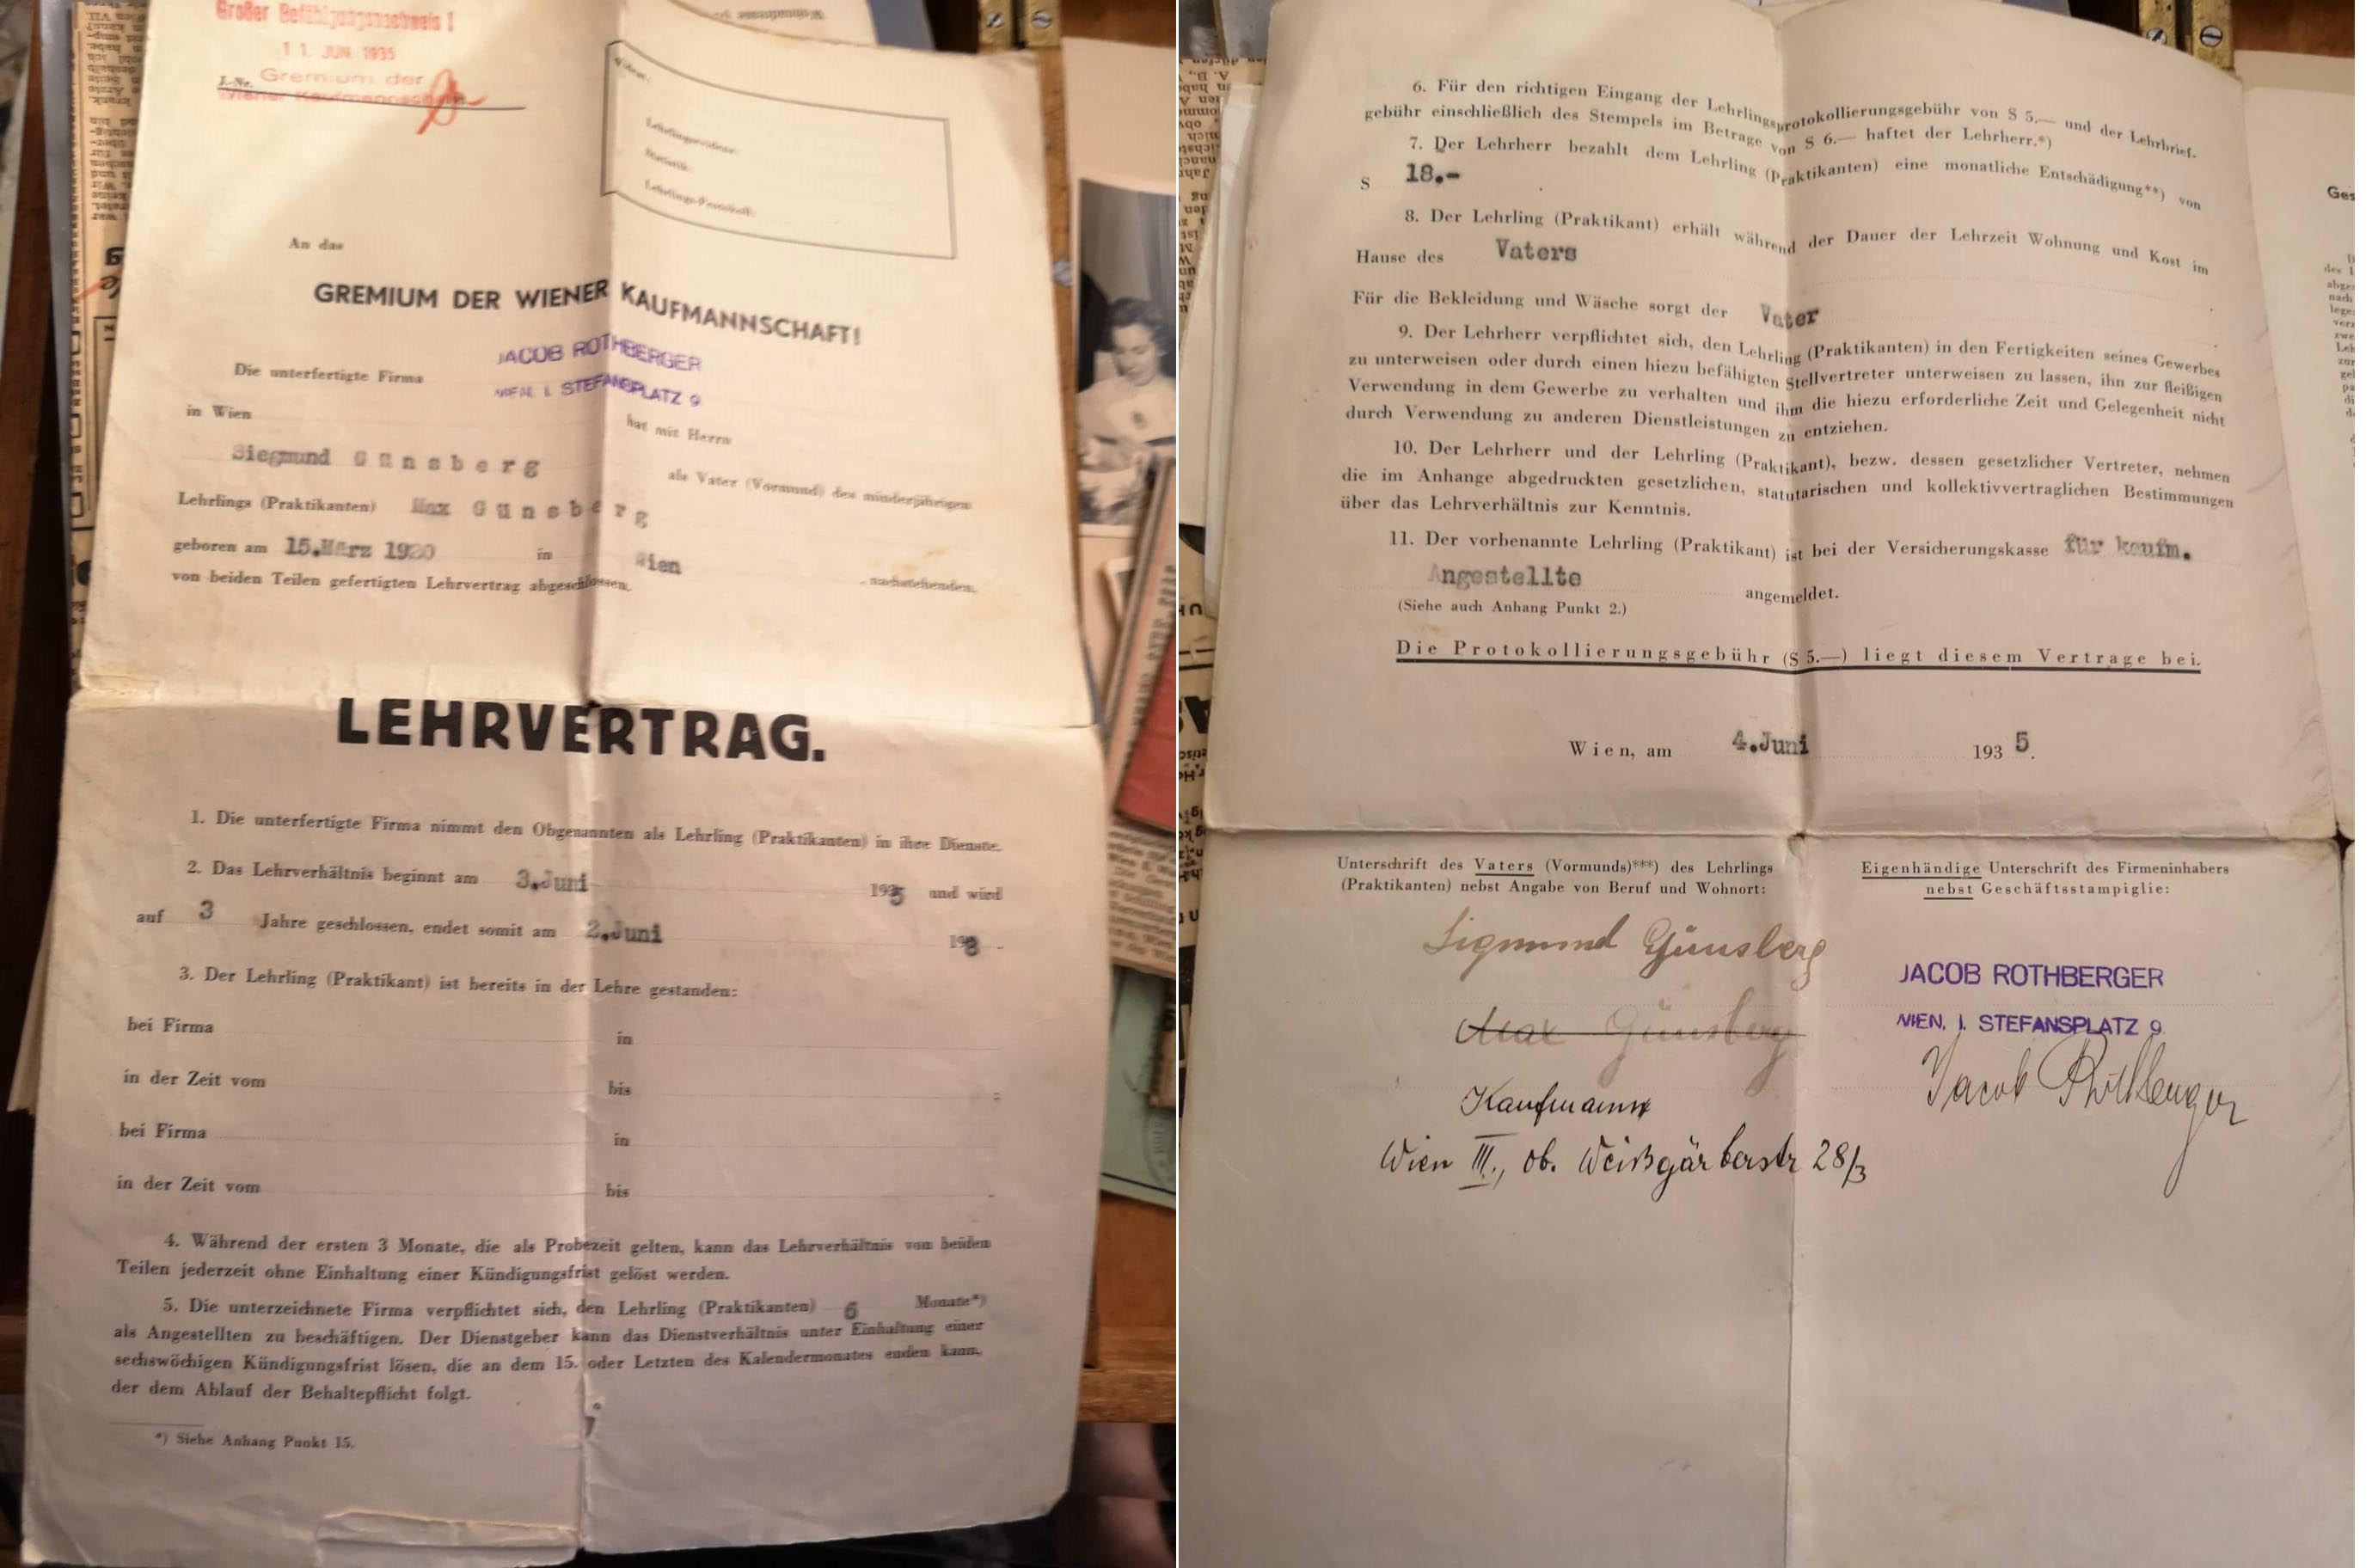 Großer Befähigungsnachweis!
11. JUN. 1935
J.-Nr. Gremium der
Wiener Kaufmannschaft
Lehrlingsevidenz:
Statistik:
Lehrlings-Protokoll:
An das
GREMIUM DER WIENER KAUFMANNSCHAFT!
JACOB ROTHBERGER
Die unterfertigte Firma
WIEN, I. STEFANSPLATZ 9
in Wien
hat mit Herrn
Siegmund Günsberg
als Vater (Vormund) des minderjährigen
Lehrlings (Praktikanten) Max Günsberg
geboren am 15.März 1920 in Wien
nachstehenden,
von beiden Teilen gefertigten Lehrvertrag abgeschlossen.
LEHRVERTRAG.
1. Die unterfertigte Firma nimmt den Obgenannten als Lehrling (Praktikanten) in ihre Dienste.
2. Das Lehrverhältnis beginnt am 3.Juni 1935 und wird
auf 3 Jahre geschlossen, endet somit am 2.Juni 1938 .
3. Der Lehrling (Praktikant) ist bereits in der Lehre gestanden:
bei Firma in
in der Zeit vom bis
bei Firma in
in der Zeit vom bis
4. Während der ersten 3 Monate, die als Probezeit gelten, kann das Lehrverhältnis von beiden
Teilen jederzeit ohne Einhaltung einer Kündigungsfrist gelöst werden.
5. Die unterzeichnete Firma verpflichtet sich, den Lehrling (Praktikanten) 6 Monate*)
als Angestellten zu beschäftigen. Der Dienstgeber kann das Dienstverhältnis unter Einhaltung einer
sechswöchigen Kündigungsfrist lösen, die an dem 15. oder Letzten des Kalendermonates enden kann,
der dem Ablauf der Behaltepflicht folgt.
*) Siehe Anhang Punkt 15.
6. Für den richtigen Eingang der Lehrlingsprotokollierungsgebühr von S 5.— und der Lehrbrief-
gebühr einschließlich des Stempels im Betrage von S 6.— haftet der Lehrherr.*)
7. Der Lehrherr bezahlt dem Lehrling (Praktikanten) eine monatliche Entschädigung**) von
S 18.-
8. Der Lehrling (Praktikant) erhält während der Dauer der Lehrzeit Wohnung und Kost im
Hause des Vaters
Für die Bekleidung und Wäsche sorgt der Vater
9. Der Lehrherr verpflichtet sich, den Lehrling (Praktikanten) in den Fertigkeiten seines Gewerbes
zu unterweisen oder durch einen hiezu befähigten Stellvertreter unterweisen zu lassen, ihn zur fleißigen
Verwendung in dem Gewerbe zu verhalten und ihm die hiezu erforderliche Zeit und Gelegenheit nicht
durch Verwendung zu anderen Dienstleistungen zu entziehen.
10. Der Lehrherr und der Lehrling (Praktikant), bezw. dessen gesetzlicher Vertreter, nehmen
die im Anhange abgedruckten gesetzlichen, statutarischen und kollektivvertraglichen Bestimmungen
über das Lehrverhältnis zur Kenntnis.
11. Der vorbenannte Lehrling (Praktikant) ist bei der Versicherungskasse für kaufm.
Angestellte angemeldet.
(Siehe auch Anhang Punkt 2.)
Die Protokollierungsgebühr (S 5.—) liegt diesem Vertrage bei.
Wien, am 4.Juni 1935.
Unterschrift des Vaters (Vormunds)***) des Lehrlings
(Praktikanten) nebst Angabe von Beruf und Wohnort:
Eigenhändige Unterschrift des Firmeninhabers
nebst Geschäftsstampiglie:
Sigmund Günsberg
Max Günsberg
Kaufmann
Wien III., ob. Weißgärberstr 28/3
JACOB ROTHBERGER
WIEN, I. STEFANSPLATZ 9
Jacob Rothberger